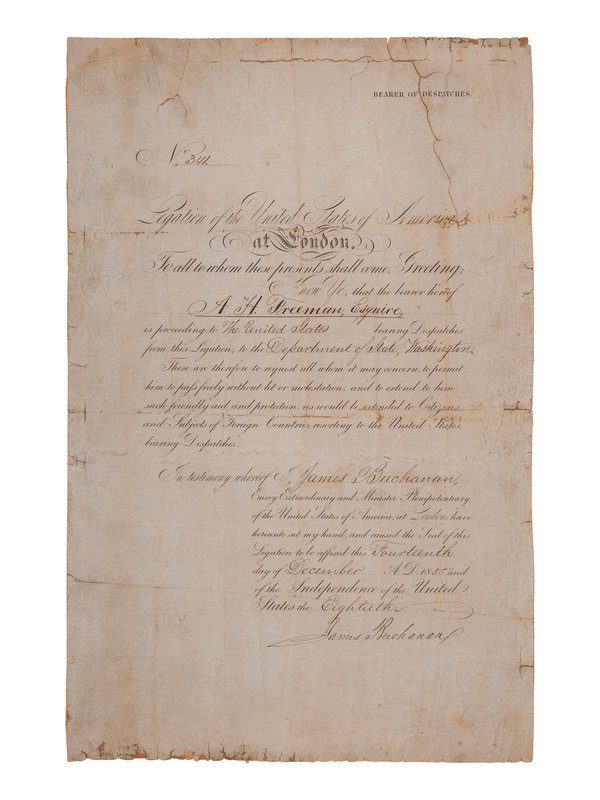 BEARER OF DESPATCHES.
No. 341
Legation of the United States of America,
at London.
To all to whom these presents shall come, Greeting;
Know Ye, that the bearer hereof
A. H. Freeman, Esquire,
is proceeding to The United States bearing Despatches
from this Legation, to the Department of State, Washington.
These are therefore to request all whom it may concern, to permit
him to pass freely without let or molestation, and to extend to him
such friendly aid and protection, as would be extended to Citizens
and Subjects of Foreign Countries, resorting to the United States,
bearing Despatches.
In testimony whereof I, James Buchanan,
Envoy Extraordinary and Minister Plenipotentiary,
of the United States of America, at London, have
hereunto set my hand, and caused the Seal of this
Legation to be affixed this Fourteenth
day of December A.D. 1855 and
of the Independence of the United
States the Eightieth.
James Buchanan